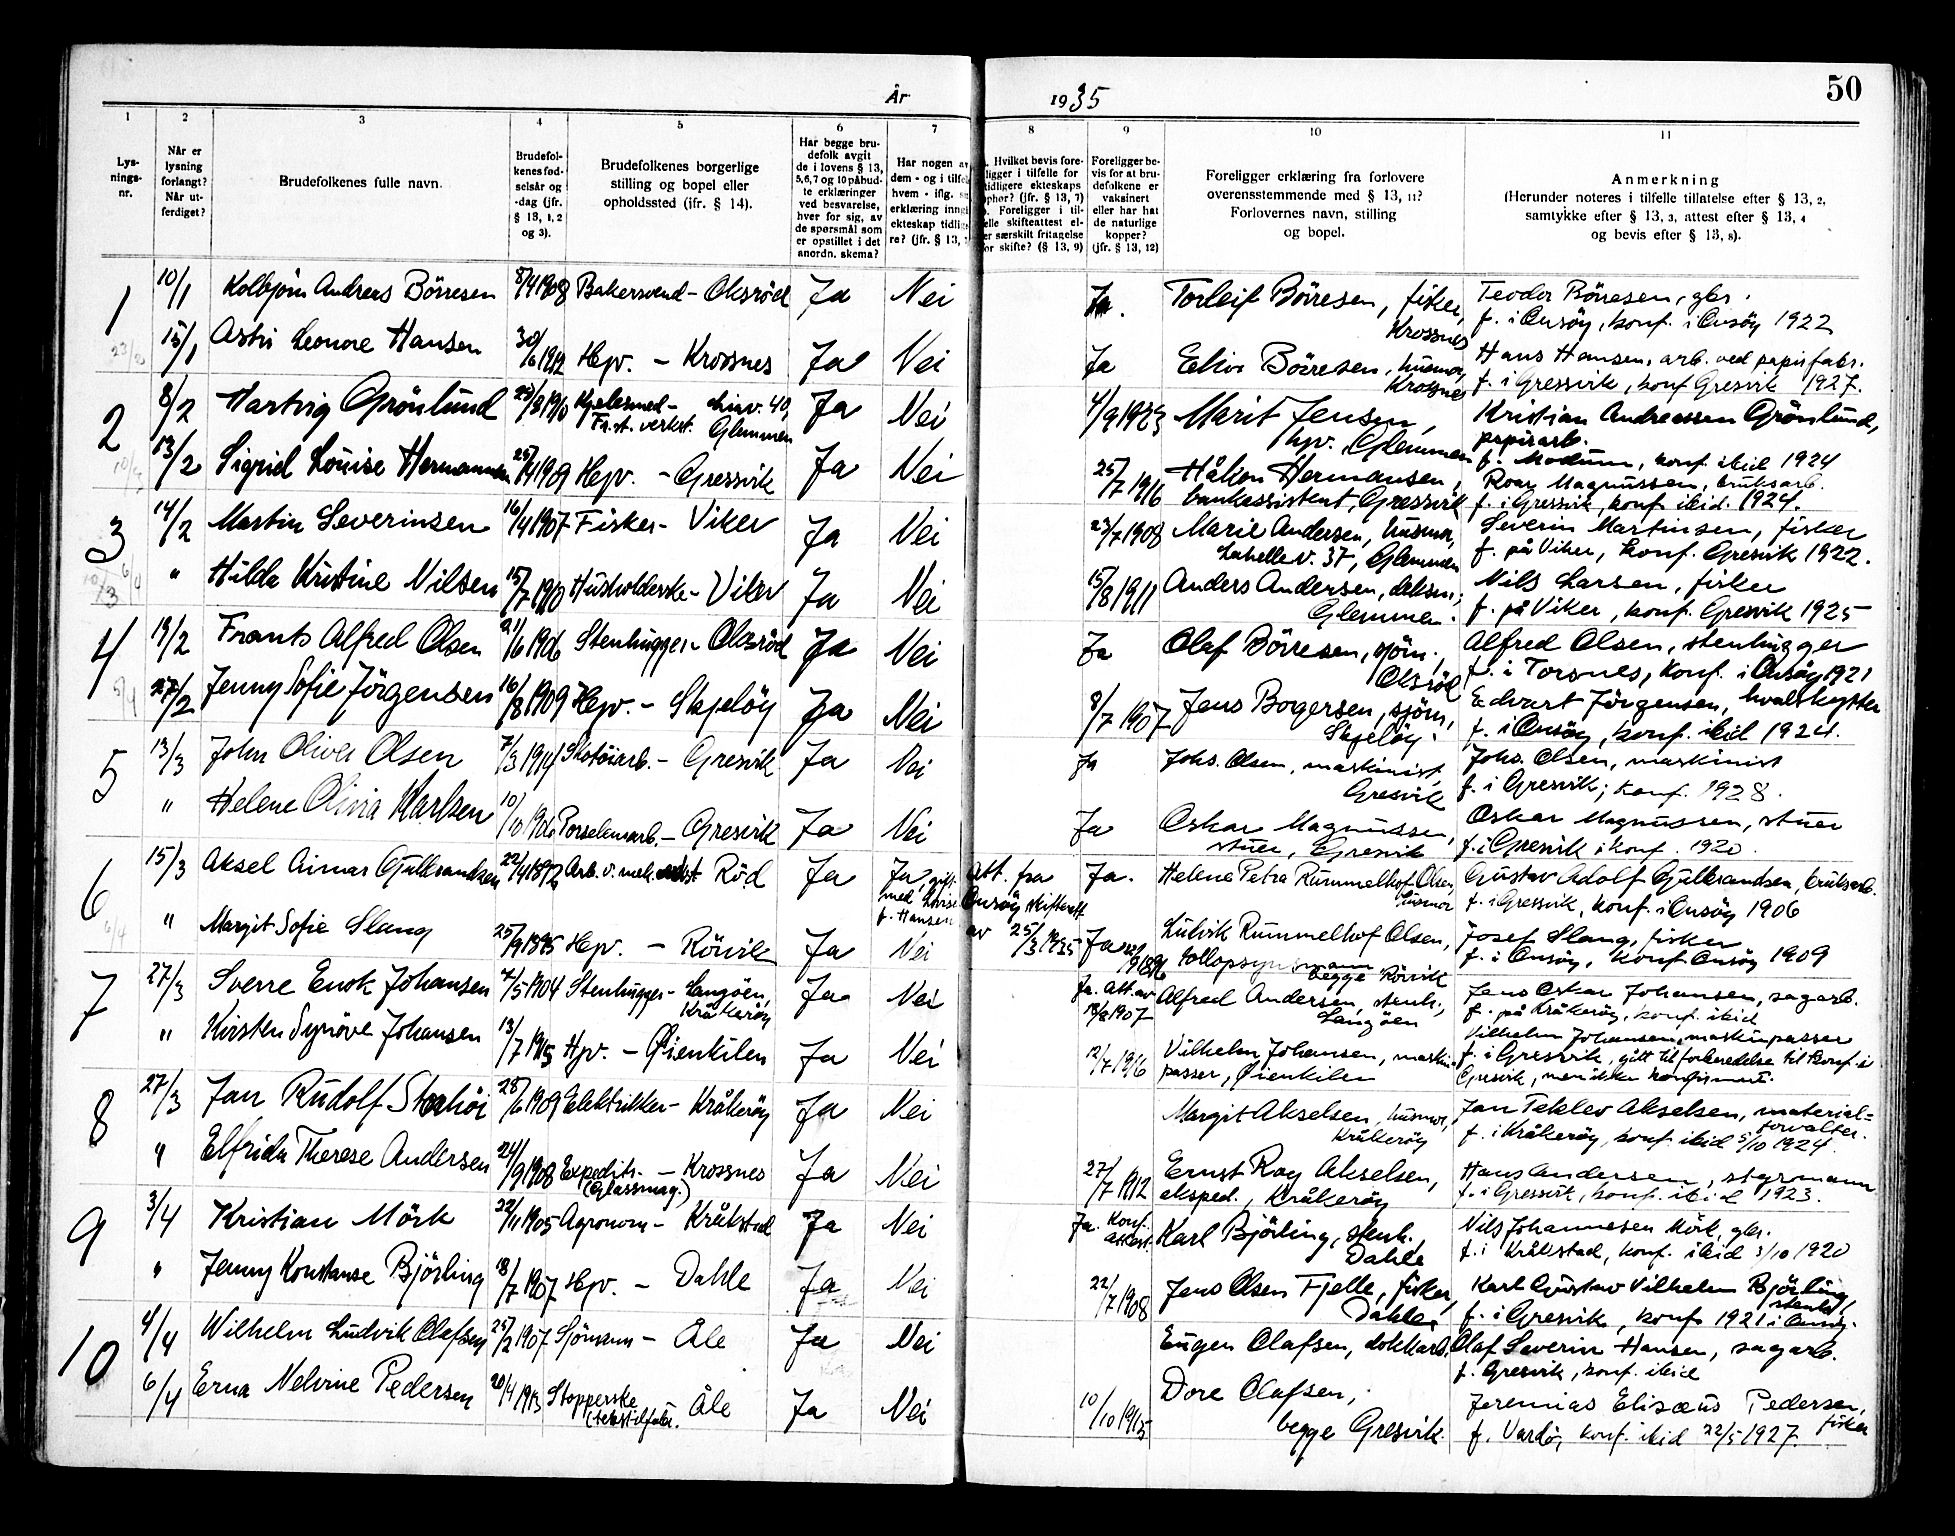 50
År 1935
1 2 3 4 5 6 7 8 9 10 11
Lys-
nings-
nr.
Når er
lysning
forlangt?
Når ut-
ferdiget?
Brudefolkenes fulle navn.
Brudefol-
kenes fød-
selsår og
-dag (jfr.
§ 13, 1, 2
og 3).
Brudefolkenes borgerlige
stilling og bopel eller
opholdssted (jfr. § 14).
Har begge bru-
defolk avgit
de i lovens § 13,
5,6,7 og 10 påbud-
te erklæringer
ved besvarelse,
hver for sig, av
de spørsmål som
er opstillet i det
anordn. skema?
Har nogen av
dem - og i tilfel
hvem - iflg.
erklæring inng
ekteskap tidlig
re? (jfr. § 13,
Hvilket bevis fore-
ligger i tilfelle for
tidligere ekteskaps
ophør? (jfr. § 13, 7)
Foreligger i til-
felle skifteattest el-
er særskilt fritagelse
or skifte? (§ 13, 9)
Foreligger be-
vis for at bru-
defolkene er
vaksinert
eller har hat
de naturlige
kopper?
(jfr. § 13, 12)
Foreligger erklæring fra forlovere
overensstemmende med § 13, 11?
Forlovernes navn, stilling
og bopel.
Anmerkning
(Herunder noteres i tilfelle tillatelse efter § 13, 2,
samtykke efter § 13, 3, attest efter § 13, 4
og bevis efter § 13, 8).
1 10/1 Kolbjørn Andreas Börresen 8/4 1908 Bakersvend - Oksröd Ja Nei Ja. Torleif Börresen, fisker, Krossnes
Teodor Börresen, gbr.
f. i Onsöy, konf. i Onsöy 1922
15/1 Astri Leonore Hansen 30/6 1912 Hpv. - Krossnes Ja Nei Ja Börresen, husmor, Krossnes
Hans Hansen, arb. ved papirfabr.
f. i Gressvik, konf. Gresvik 1927.
2 8/2 Hartvig Grönlund 23/8 1910 Kjelesmed - 40,
Fr.st. verkst. Glemmen Ja Nei 4/9 1923 Marit Jensen,
hpv. Glemmen
Kristian Andreassen Grönlund,
papirarb.
f. Modum, konf. ibid 1924
13/2 Sigrid Louise Hermansen 25/4 1909 Hpv. - Gressvik Ja Nei 25/7 1916 Håkon Hermansen,
bankassistent, Gressvik
Roar Magnussen, bruksarb.
f. i Gressvik, konf. ibid. 1924.
3 14/2 Martin Severinsen 16/4 1907 Fisker - Viker Ja Nei 23/7 1908 Marie Andersen, husmor,
Labellev. 37, Glemmen
Severin Martinsen, fisker
f. på Viker, konf. Gresvik 1922.
" Hilda Kristine Nilsen 15/7 1910 Husholderske - Viker Ja Nei 15/8 1911 Anders Andersen,
Glemmen.
Nils Larsen, fisker
f. på Viker, konf. Gresvik 1925
4 19/2 Frants Alfred Olsen 21/6 1906 Stenhugger - Oksröd Ja Nei Ja Olaf Börresen, sjöm.,
Oksröd
Alfred Olsen, stenhugger
f. i Torsnes, konf. i Onsöy 1921
27/2 Jenny Sofie Jörgensen 16/8 1909 Hpv. - Skjelöy Ja Nei 8/7 1907 Jens Borgersen, sjöm,
Skjelöy.
Edvart Jörgensen, hvalskytter
f. i Onsöy, konf. ibid 1924.
5 13/3 John Oliver Olsen 7/3 1914 Skotöiarb. - Gresvik Ja Nei Ja Johs. Olsen, maskinist,
Gresvik
Johs. Olsen, maskinist
f. i Gresvik; konf. 1928.
" Helene Olivia Karlsen 10/10 1906 Porselensarb. - Gresvik Ja Nei Ja Oskar Magnussen,
stuer, Gresvik
Oskar Magnussen, stuer
f. i Gresvik i konf. 1920.
6 15/3 Aksel Gulbrandsen 22/4 1892 Arb. v. mek. verkst Röd Ja Ja, gift
med
f. Hansen Att. fra
Onsöy skifterett
av 25/3 1935 Ja. Helene Petra Rummelhof Olsen,
husmor
Gustav Adolf Gulbrandsen, bruksarb.
f. i Gressvik, konf. i Onsöy 1906
" Margit Sofie Slang 25/9 1895 Hpv. - Rörvik Ja Nei Ja Ludvik Rummelhof Olsen,
begge Rörvik
Josef Slang, fisker
f. i Onsöy, konf. Onsöy 1909
7 27/3 Sverre Enok Johansen 4/5 1904 Stenhugger - Langöen,
Kråkeröy Ja Nei Ja. Att. av
1907 Alfred Andersen, stenh.,
Langöen
Jens Oskar Johansen, sagarb.
f. på Kråkeröy, konf. ibid
" Kirsten Synöve Johansen 13/7 1915 Hpv. - Öienkilen Ja Nei 12/7 1916 Vilhelm Johansen, maskin-
passer, Öienkilen
Vilhelm Johansen, maskinpasser
f. i Gressvik, gått til forberedelse til konf. i
Gresvik, men ikke konfirmert.
8 27/3 Jan Rudolf Storhöi 28/6 1909 Elektriker - Kråkeröy Ja Nei Margit Akselsen, husmor,
Kråkeröy
Jan Teklev Akselsen, material=
forvalter.
f. i Kråkeröy, konf. ibid 5/10 1924.
" Elfrida Therese Andersen 24/9 1908 Expeditr. - Krossnes
(Glassmag.) Ja Nei 27/7 1912 Ernst Roy Akselsen,
eksped., Kråkeröy
Hans Andersen, styrmann
f. i Gressvik, konf. ibid 1923.
9 3/4 Kristian Mörk 22/11 1905 Agronom - Kråkstad Ja Nei Ja. Konf.
attest. Karl Björling, stenh.,
Dahle
Nils Johannesen Mörk, gbr.
f. i Kråkstad, konf. ibid 3/10 1920
" Jenny Konstanse Björling 18/7 1907 Hpv. - Dahle Ja Nei 22/7 1908 Jens Olsen Fjelle, fisker,
Dahle.
Karl Gustav Vilhelm Björling,
stenh.
f. i Gresvik, konf. 1921 i Onsöy.
10 4/4 Wilhelm Ludvik Olafsen 25/2 1907 Sjömann - Åle Ja Nei Eugen Olafsen, dokkarb.
Olaf Severin Hansen, sagarb.
f. Gresvik, konf. ibid
6/4 Erna Nelvine Pedersen 20/4 1913 Stopperske
(tekstilfabr. - Åle Ja Nei 10/10 1915 Dore Olafsen,
begge Gresvik.
Jeremias Elisæus Pedersen,
fisker
f. Vardö, konf. ibid 22/5 1927.